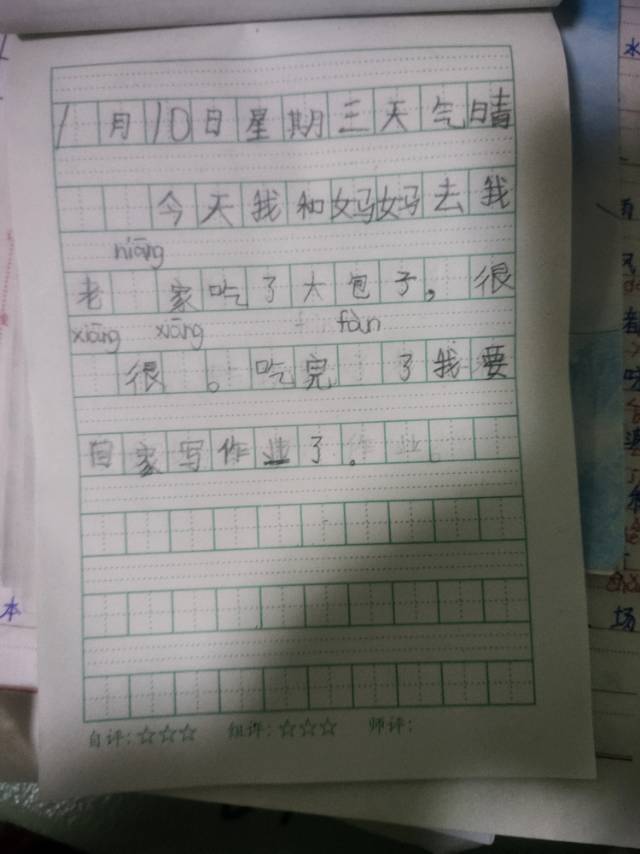 1月10日星期三天气晴
今天我和妈妈去我
niāng
老 家吃了大包子，很
xiāng xiāng fàn
很 。吃完 了我要
自家写作业了。
自评：☆☆☆ 组评：☆☆☆ 师评：
本
水
场